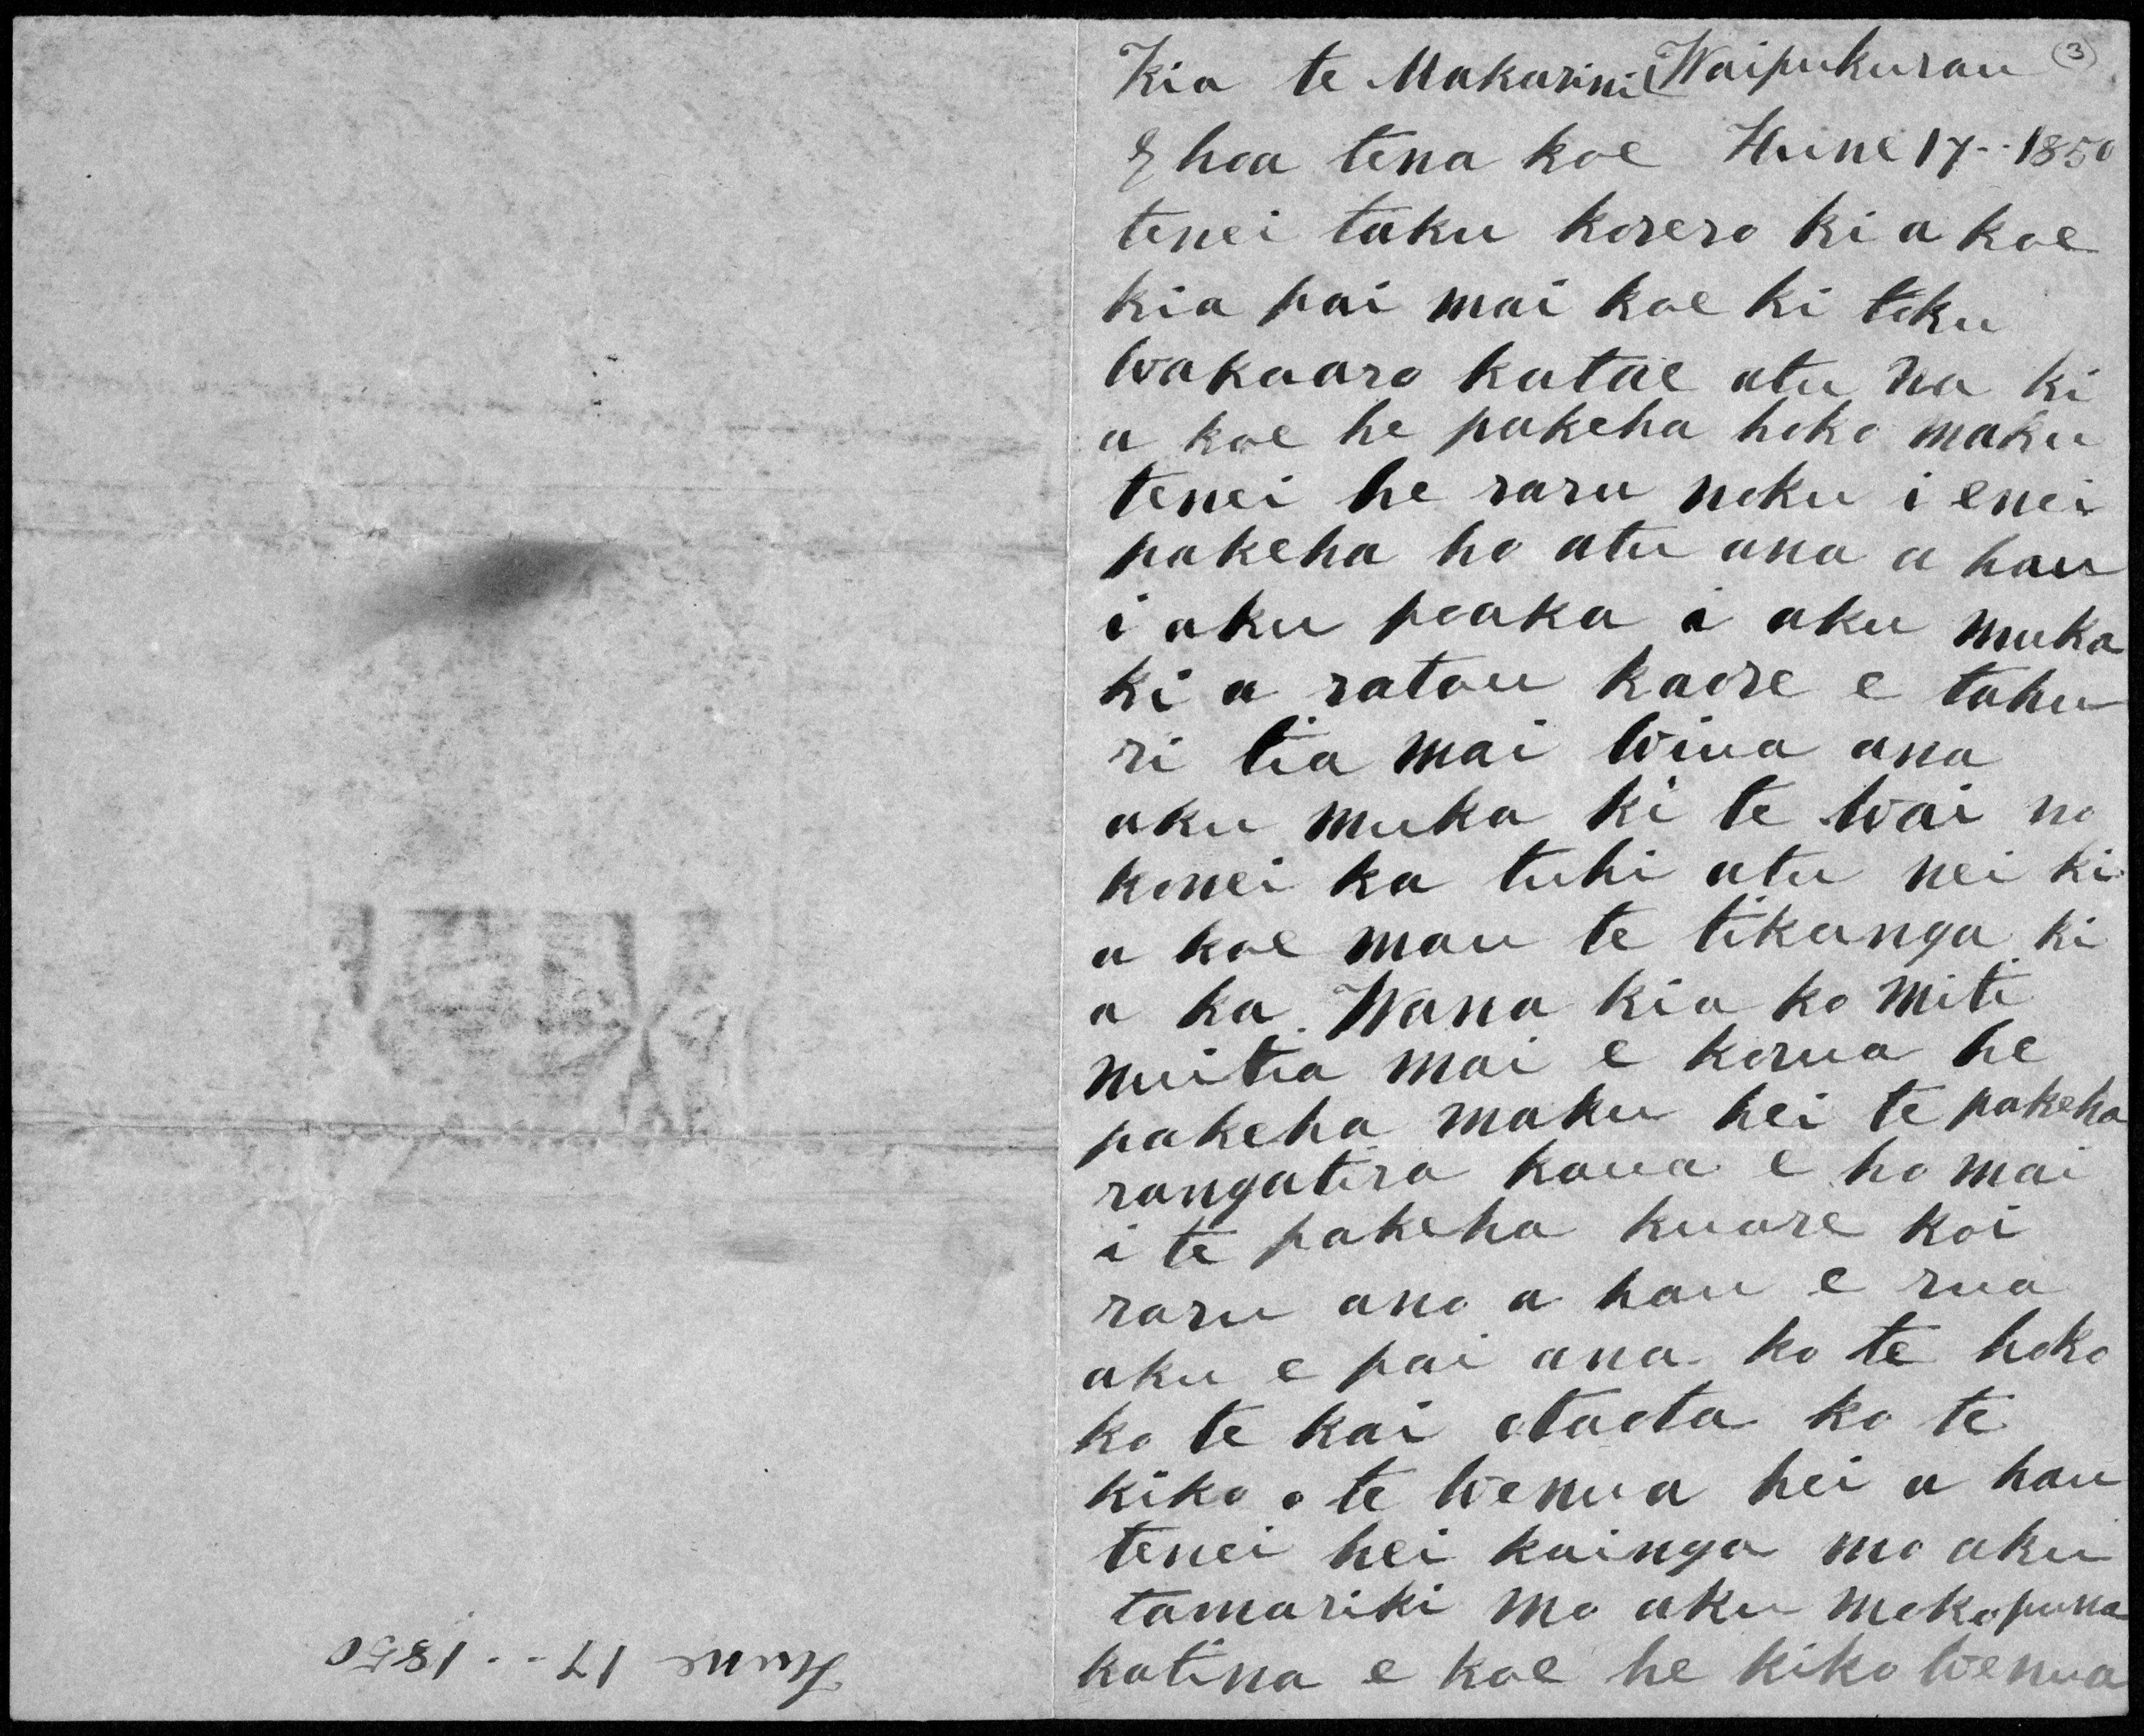 Kia te Makarini Waipukurau 3
E hoa tena koe Hune 17--1850
tenei taku korero ki a koe
kia pai mai koe ki toku
wakaaro kotae atu na ki
a koe he pakeha hoko maku
tenei he raru noku i enei
pakeha ho atu ana a hau
i aku poaka i aku muka
ki a ratou kaore e tahu
ri tia mai wiua ana
aku muka ki te wai no
konei ka tuhi atu nei ki
a koe mau te tikanga ki
a ka Wana kia ko miti
nuitia mai e korua he
pakeha maku hei te pakeha
rangatira kaua e ho mai
i te pakeha kuare koi
raru ano a hau e rua
aku e pai ana ko te hoko
ko te kai otaota ko te
kiko o te wenua hei a hau
tenei hei kainga mo aku
tamariki mo aku mokopuna
katina e koe he kiko wenua
Hune 17--1850